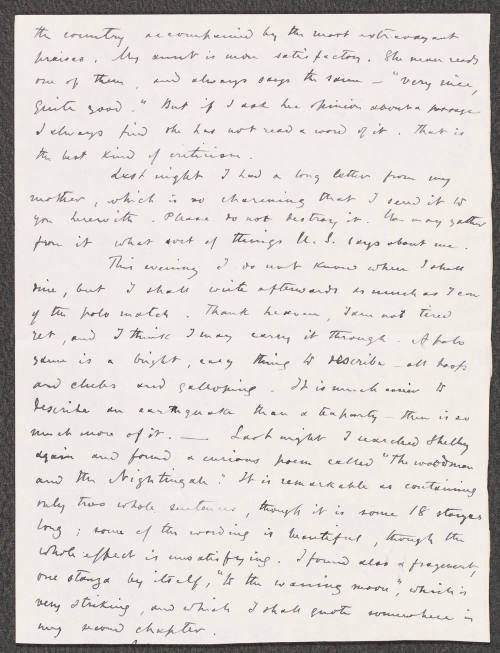 the country accompanied by the most extravagant
praises. My aunt is more satisfactory. She never reads
one of them, and always says the same – "very nice,
quite good." But if I ask her opinion about a passage
I always find she has not read a word of it. That is
the best kind of criticism.
Last night I had a long letter from my
mother, which is so charming that I send it to
you herewith. Please do not destroy it. You may gather
from it what sort of things U.S. says about me.
This evening I do not know where I shall
dine, but I shall write afterwards as much as I can
of the polo match. Thank heaven, I am not tired
yet, and I think I may carry it through. A polo
game is a bright, easy thing to describe – all hoofs
and clubs and galloping. It is much easier to
describe an earthquake than a teaparty – there is so
much more of it. — Last night I searched Shelley
again and found a curious poem called "The woodman
and the Nightingale". It is remarkable as containing
only two whole sentences, though it is some 18 stanzas
long; some of the wording is beautiful, though the
whole effect is unsatisfying. I found also a fragment,
one stanza by itself, "to the waning moon", which is
very striking, and which I shall quote somewhere in
my second chapter.